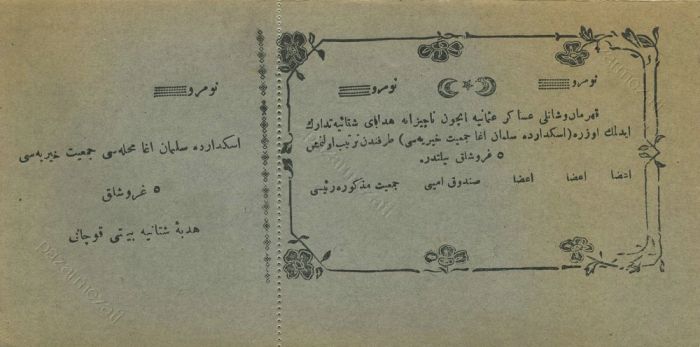 نومرو
نومرو
قهرمان و شانلی عساكر عثمانیه ایچون ناچیزانه هدایای شتائیه تدارك
ایدلمك اوزره (اسكدارده سلمان اغا جمعیت خیریه‌سی) طرفندن ترتیب اولنمش
٥ غروشلق بیلتدر.
اعضا اعضا اعضا صندوق امینی جمعیت مذكوره رئیسی
نومرو
اسكدارده سلمان اغا محله‌سی جمعیت خیریه‌سی
٥ غروشلق
هدیهٔ شتائیه بیلتی قوچانی